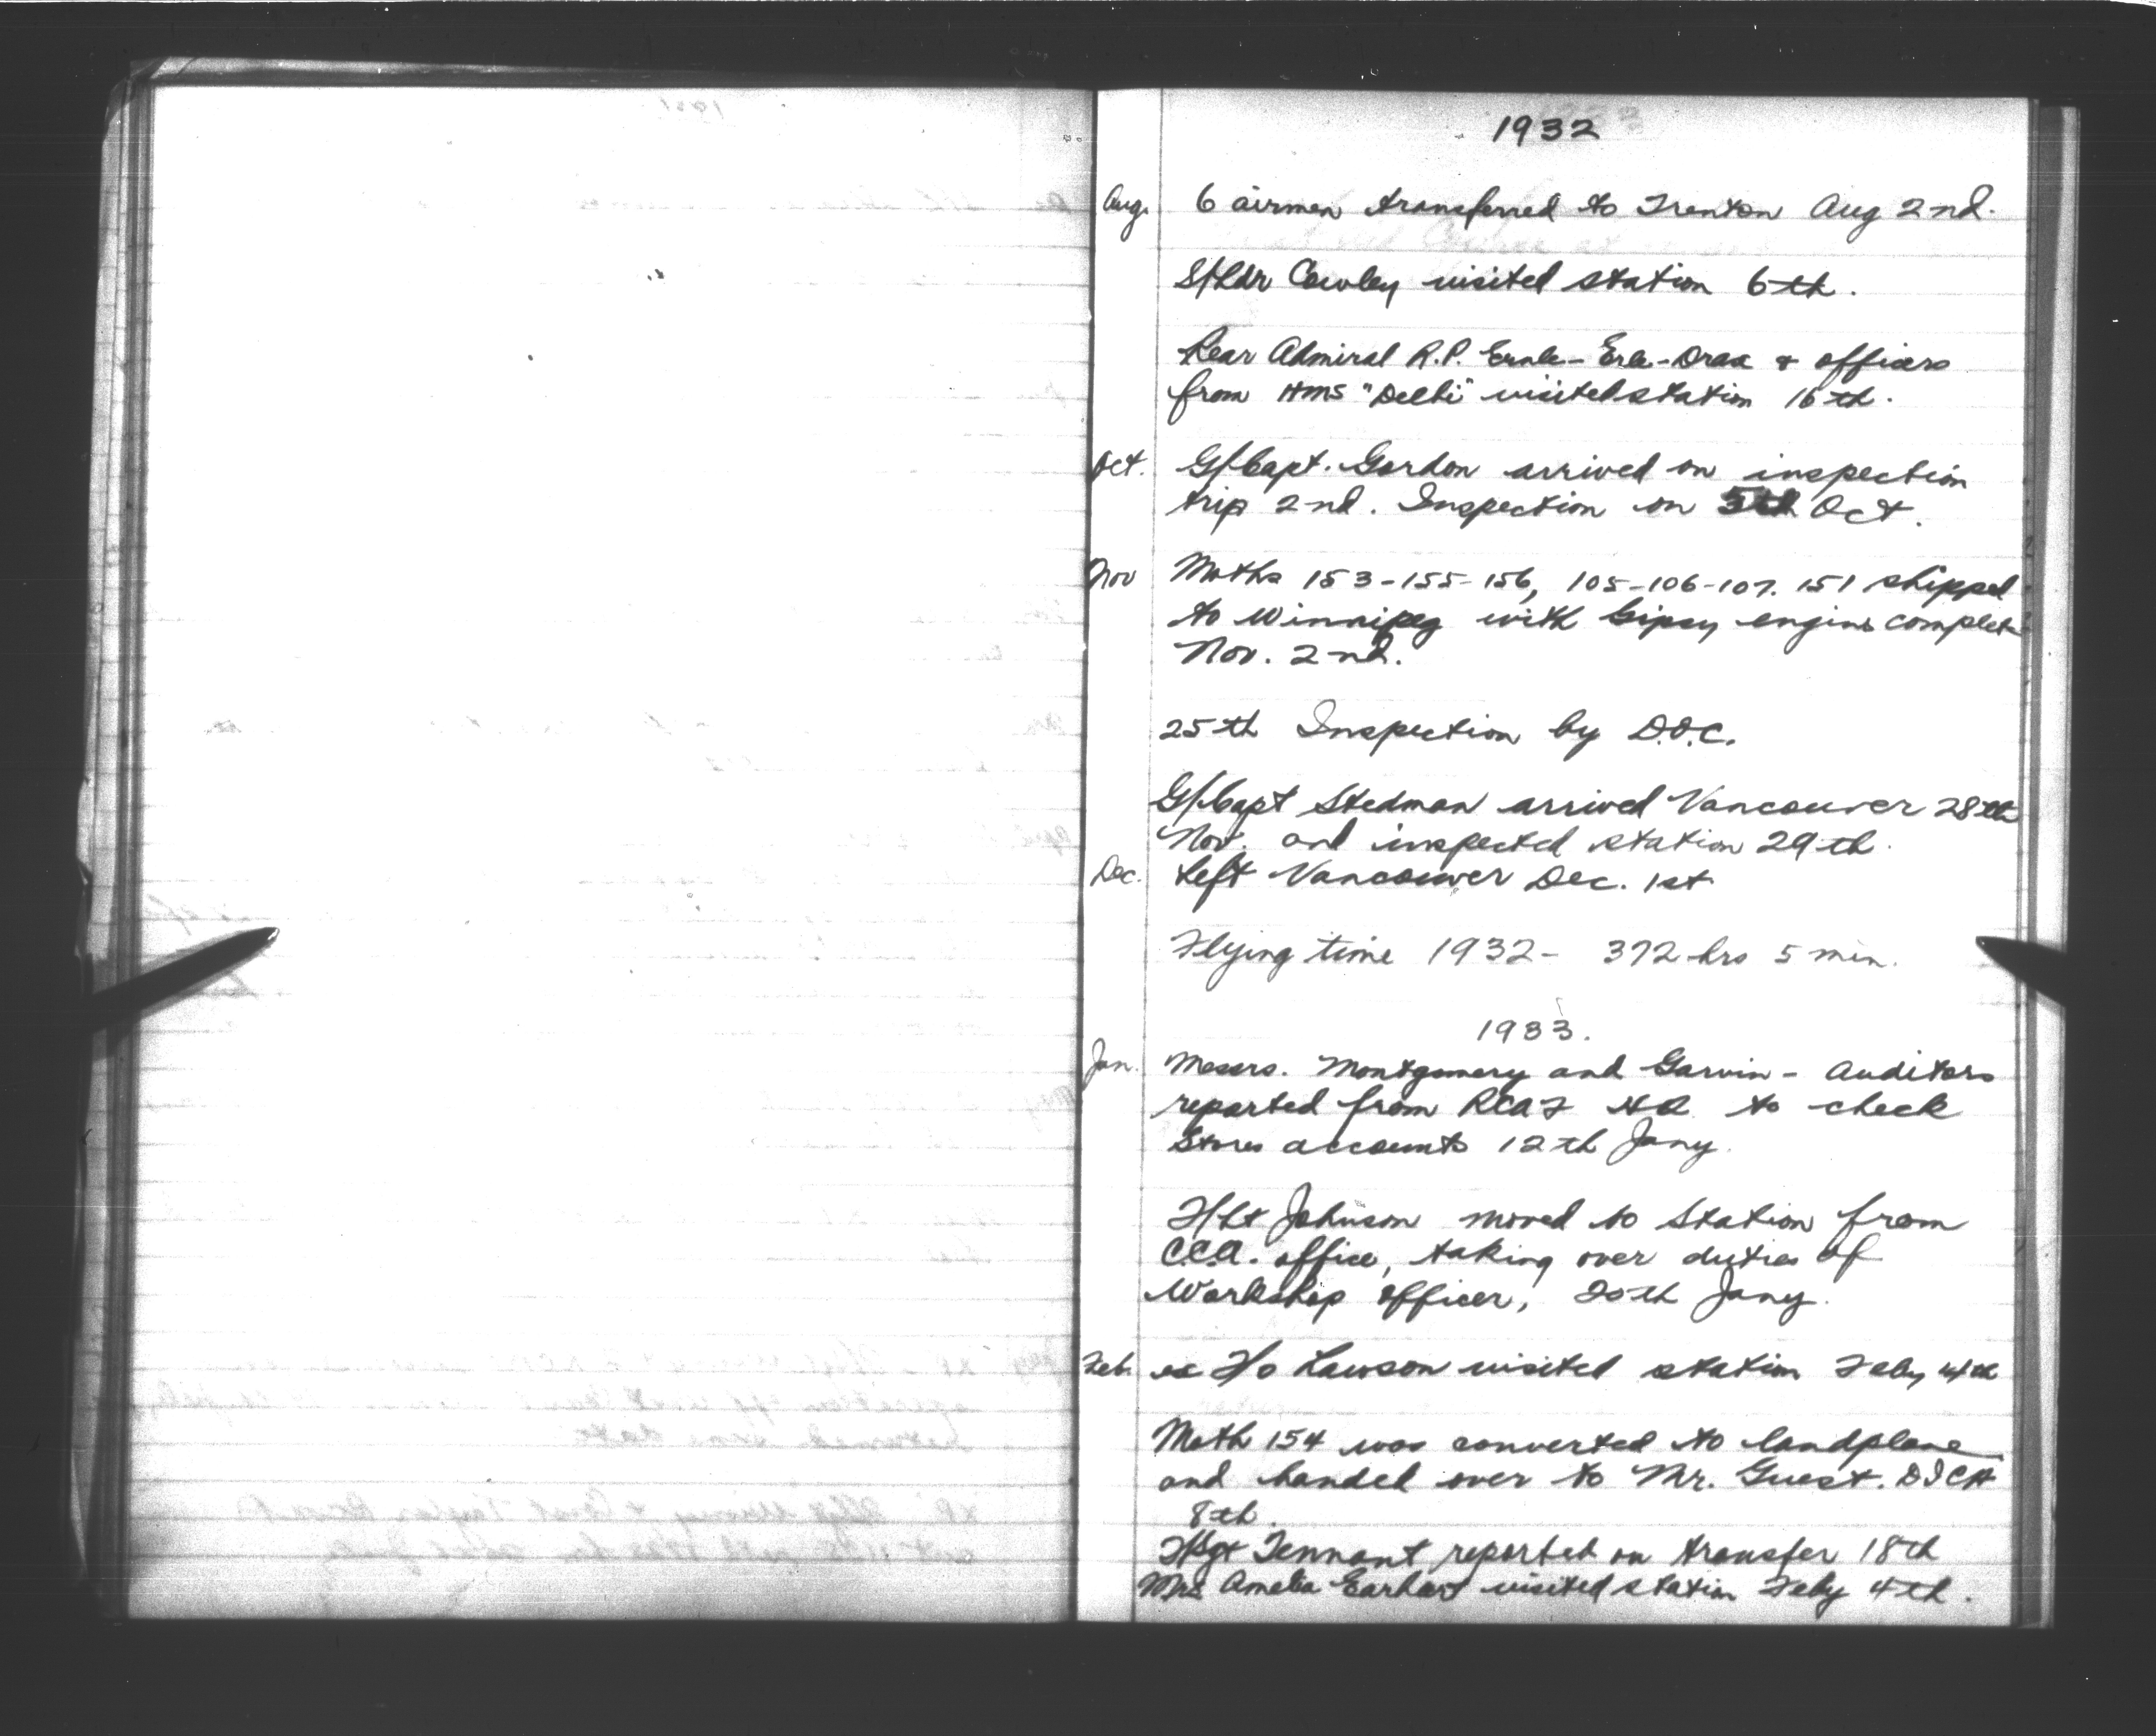 1932
Aug. 6 airmen transferred to Trenton Aug 2nd.
S/Ldr Cowley visited station 6th.
Rear Admiral R.P. Ernle-Erle-Drax & officers
from HMS "Delhi" visited station 16th.
Oct. G/Capt. Gordon arrived on inspection
trip 2nd. Inspection on 5th Oct.
Nov Moths 153-155-156, 105-106-107. 151 shipped
to Winnipeg with Gipsy engines complete
Nov. 2nd.
25th Inspection by D.O.C.
G/Capt Stedman arrived Vancouver 28th
Nov. and inspected station 29th.
Dec. Left Vancouver Dec. 1st
Flying time 1932- 372 hrs 5 min.
1933.
Jan. Messrs. Montgomery and Garvin - Auditors
reported from RCAF HQ to check
Stores accounts 12th Jany.
F/Lt Johnson moved to Station from
C.C.A. office, taking over duties of
Workshop officer, 20th Jany.
Feb. ex F/O Lawson visited station Feby 4th
Moth 154 was converted to landplane
and handed over to Mr. Guest. DICA
8th.
F/Sgt Tennant reported on transfer 18th
Mrs Amelia Earhart visited station Feby 4th.